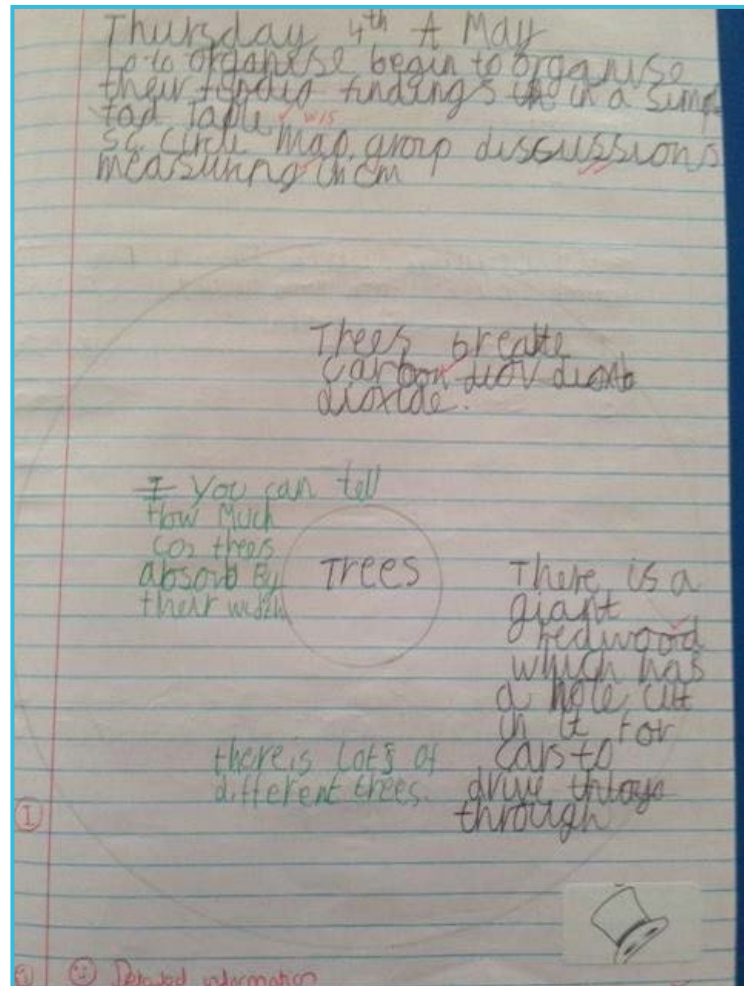 Thursday 4th A May
Lo to organise begin to organise
their findings in in a simp
tad Table
w/s
sc circle map, group discussions
measuring in cm
Trees breathe
carbon diov dioxid
dioxide.
I You can tell
How Much
CO2 trees
absorb By
their width
Trees
There is a
giant
redwood
which has
a hole cut
in it for
cars to
drive throyo
through
there is Lots of
different trees.
I
Detailed information